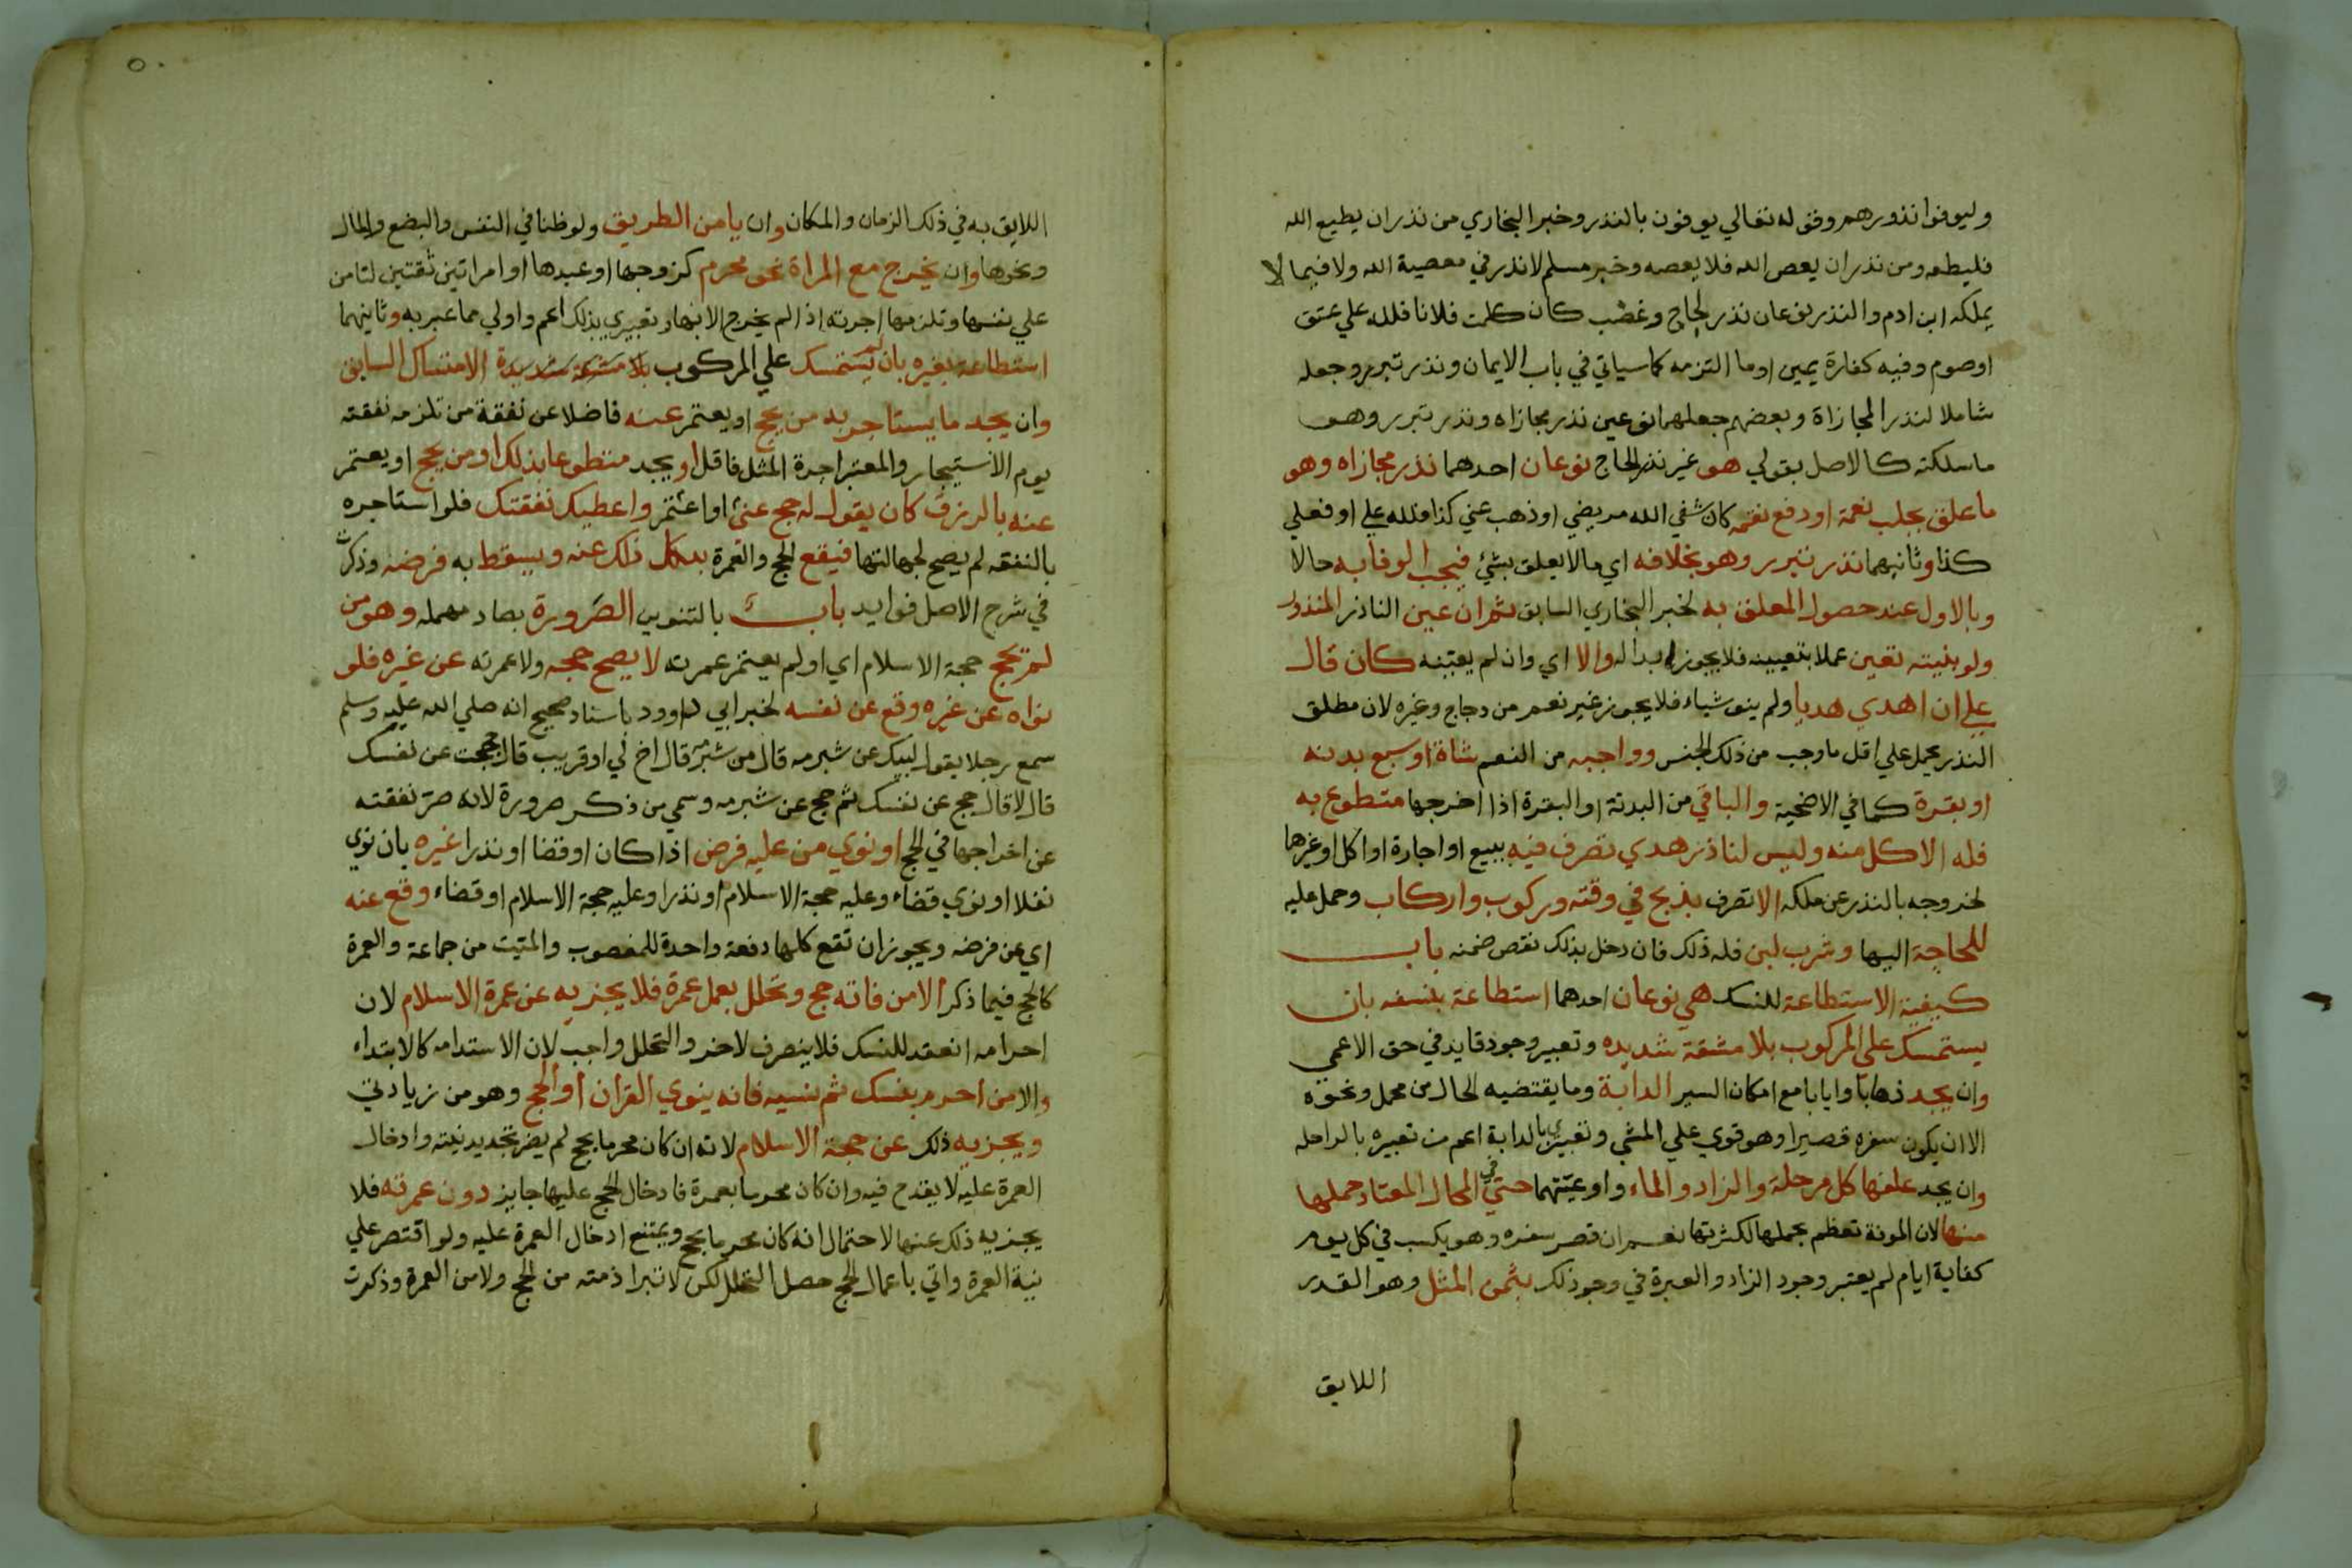 وليوفوا نذورهم وقوله تعالي يوفون بالنذر وخبر البخاري من نذر ان يطيع الله
فليطعه ومن نذر ان يعص الله فلا يعصه وخبر مسلم لا نذر في معصية الله ولا فيما لا
يملكه ابن ادم والنذر نوعان نذر لجاج وغضب كان كلمت فلانا فلله علي عتق
او صوم وفيه كفارة يمين او ما التزمه كما سياتي في باب الايمان ونذر تبرر وجعله
شاملا لنذر المجازاة وبعضهم جعلهما نوعين نذر مجازاه ونذر تبرر وهو
ما سلكته كالاصل بقولي هو غير نذر اللجاج نوعان احدهما نذر مجازاه وهو
ما علق بجلب نعمة او دفع نقمه كان شفي الله مريضي او ذهب عني كذا فلله علي او فعلي
كذا وثانيهما نذر تبرر وهو بخلافه اي ما لا يعلق بشيء فيجب الوفا به حالا
وبالاول عند حصول المعلق به لخبر البخاري السابق ثم ان عين الناذر المنذور
ولو بنيته تعين عملا بتعيينه فلا يجوز ابداله والا اي وان لم يعينه كان قال
علي ان اهدي هديا ولم ينو شياء فلا يجوز غير نعم من دجاج وغيره لان مطلق
النذر يحمل علي اقل ما وجب من ذلك الجنس وواجبه من النعم شاة او سبع بدنه
او بقرة كما في الاضحية والباقي من البدنة او البقرة اذا اخرجها متطوع به
فله الاكل منه وليس لناذر هدي تصرف فيه ببيع او اجارة او اكل او غيرها
لخروجه بالنذر عن ملكه الا تصرف بذبح في وقته وركوب واركاب وحمل عليه
للحاجة اليها وشرب لبن فله ذلك فان دخل بذلك نقص ضمنه باب
كيفية الاستطاعة للنسك هي نوعان احدهما استطاعة بنفسه بان
يستمسك علي المركوب بلا مشقة شديده وتعبير وجود قايد في حق الاعمي
وان يجد ذهابا وايابا مع امكان السير الدابة وما يقتضيه الحال من محمل ونحوه
الا ان يكون سفره قصيرا وهو قوي علي المشي وتعبيري بالدابة اعم من تعبيره بالراحله
وان يجد علفها كل مرحلة والزاد والماء واوعيتهما حتي في المحال المعتاد حملها
منها لان المونة تعظم بحملها لكثرتها نعم ان قصر سفره وهو يكسب في كل يوم
كفاية ايام لم يعتبر وجود الزاد والعبرة في وجود ذلك بثمن المثل وهو القدر
اللايق
٥٠
اللايق به في ذلك الزمان والمكان وان يامن الطريق ولو ظنا في النفس والبضع والمال
ونحوها وان يخرج مع المراة نحو محرم كزوجها او عبدها او امراتين ثقتين لتامن
علي نفسها وتلزمها اجرته اذا لم يخرج الا بها وتعبيري بذلك اعم واولي مما عبر به وثانيهما
استطاعة بغيره بان لم يستمسك علي المركوب بلا مشقة شديدة الامتساك السابق
وان يجد ما يستاجر به من يحج او يعتمر عنه فاضلا عن نفقة من تلزمه نفقته
يوم الاستيجار والمعتبر اجرة المثل فاقل او يجد متطوعا بذلك او من يحج او يعتمر
عنه بالرزق كان يقول له حج عني او اعتمر واعطيك نفقتك فلو استاجره
بالنفقه لم يصح لجهالتها فيقع الحج والعمرة بكل ذلك عنه ويسقط به فرضه وذكرت
في شرح الاصل فوايد باب بالتنوين الصرورة بصاد مهمله وهو من
لم يحج حجة الاسلام اي او لم يعتمر عمرته لا يصح حجه ولا عمرته عن غيره فلو
نواه عن غيره وقع عن نفسه لخبر ابي داوود باسناد صحيح انه صلي الله عليه وسلم
سمع رجلا يقول لبيك عن شبرمه قال من شبرمه قال اخ لي او قريب قال احججت عن نفسك
قال لا قال حج عن نفسك ثم حج عن شبرمه وسمي من ذكر صرورة لانه صر نفقته
عن اخراجها في الحج او نوي من عليه فرض اذا كان او قضا او نذرا غيره بان نوي
نفلا او نوي قضاء وعليه حجة الاسلام او نذرا وعليه حجة الاسلام او قضاء وقع عنه
اي عن فرضه ويجوز ان تقع كلها دفعة واحدة للمغصوب والميت من جماعة والعمرة
كالحج فيما ذكر الا من فاته حج وتحلل بعمل عمرة فلا يجزيه عن عمرة الاسلام لان
احرامه انعقد للنسك فلا ينصرف لاخر والتحلل واجب لان الاستدامه كالابتداء
والا من احرم بنسك ثم نسيه فانه ينوي القران او الحج وهو من زيادتي
ويجزيه ذلك عن حجة الاسلام لانه ان كان محرما بحج لم يضر تجديد نيته وادخال
العمرة عليه لا يقدح فيه وان كان محرما بعمرة فادخال الحج عليها جايز دون عمرته فلا
يجزيه ذلك عنها لاحتمال انه كان محرما بحج ويمتنع ادخال العمرة عليه ولو اقتصر علي
نية العمرة واتي باعمال الحج حصل التحلل لكن لا تبرا ذمته من الحج ولا من العمرة وذكرت